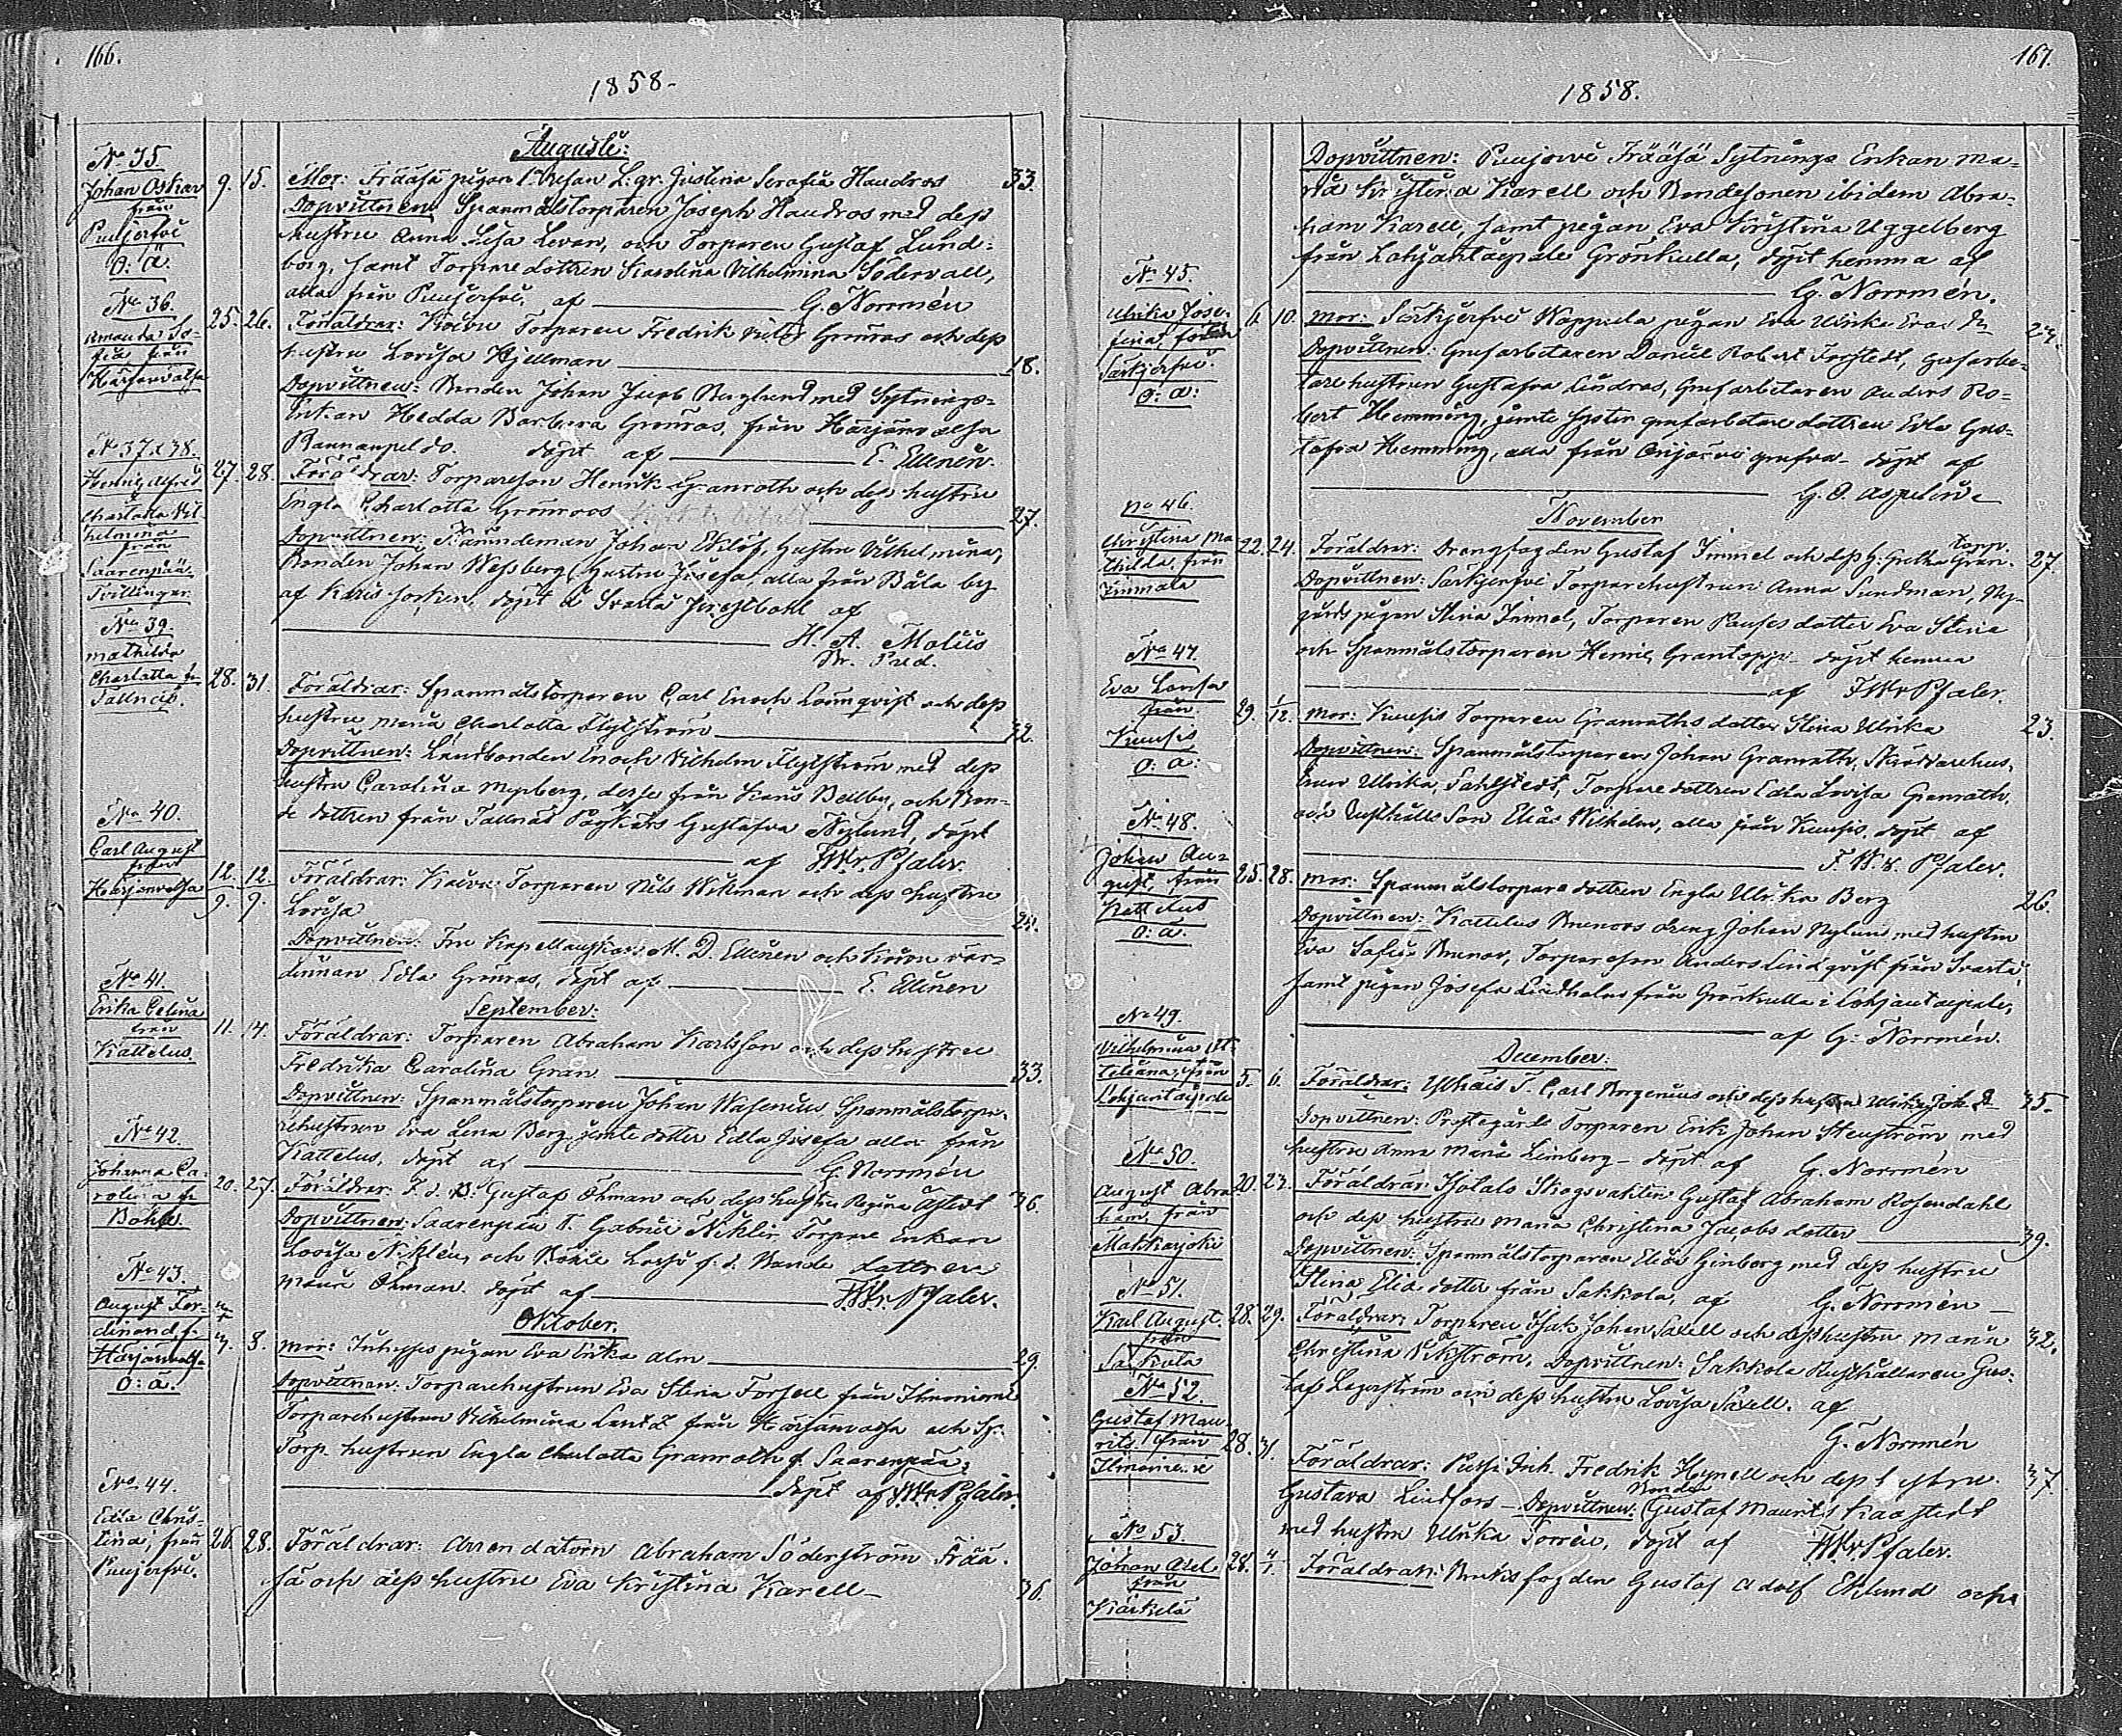 166.
1858.
Augusti:
No 35.
Johan Oskar
från
Puujerfvi
O: Ä:
9. 15.
Mor: Frääsä pigan L: gr. Justina Serafia Haudros
33.
Dopvittnen: Spanmålstorparen Joseph Haudros med dess
hustru Anna Lisa Levan, och Torparen Gustaf Lund=
borg, samt Torparedottren Karolina Vilhelmina Södervall,
alla från Puujerfvi, af G. Norrmén
No 36.
Amanda So-
fia från
Harjanvalsa
25. 26.
Föräldrar: Koivu Torparen Fredrik Grönros och dess
hustru Lovisa Hjellman
18.
Dopvittnen: Bonden Johan Jacob Berglund med Sytnings=
Enkan Hedda Barbara Grönros, från Harjanvalsa
döpt af E. Ellenén.
No 37 & 38.
Henric Alfred
&
Charlotta Vil-
helmina
från
Saarenpää
Tvillingar
27. 28.
Föräldrar: Torpareson Henrik Granroth och dess hustru
Engla Charlotta Grönroos
27.
Dopvittnen: Nämndeman Johan Eklöf, hustru Vilhelmina,
Bonden Johan Wessberg, hustru Josefa, alla från Båla by
af Karis socken, döpt å Svartå af
H. A. Moliis
Br. Pred.
No 39.
Mathilda
Charlotta fr.
Tallnäs.
28. 31.
Föräldrar: Spanmålstorparen Carl Enoch Lönnqvist och dess
hustru Maria Charlotta Flythström
32.
Dopvittnen: Landbonden Enoch Vilhelm Flythström med dess
hustru Carolina Nyberg, desse från Karis Bällby, och Bon-
de dottren från Tallnäs Påykärs Gustafva Nylund, döpt
af FWv. Pfaler.
No 40.
Carl August
från
Harjanvalsa
12. 12.
9. 9.
Föräldrar: Koivu Torparen Nils Wikman och dess hustru
Lovisa
24.
Dopvittnen: Fru Kapellanskan M. D. Ellenen och Koivu vär-
dinnan Edla Grönros, döpt af E. Ellenen
September:
No 41.
Erika Celina
från
Kattelus.
11. 14.
Föräldrar: Torparen Abraham Karlsson och dess hustru
Fredrika Carolina Grän
33.
Dopvittnen: Spanmålstorparen Johan Wasenius Spanmålstorpa-
rehustrun Eva Lena Berg jemte dotter Edla Josefa alla från
Kattelus, döpt af G. Norrmén
No 42.
Johanna Ca-
rolina fr.
Böhle
20. 27.
Föräldrar: F. d. B: Gustaf Öhman och dess hustru Regina
36.
Dopvittnen: Saarenpää T. Gabriel Niklén Torpare Enkan
Lovisa Niklén, och f. d. Bonde dottren
Maria Öhman. döpt af FWv. Pfaler.
Oktober.
No 43.
August Fer-
dinand, f.
Harjanvals-
O: ä.
3. 8.
Mor: pigan Eva Erika Alm
29.
Dopvittnen: Torparehustrun Eva Stina Forsell från
Torparehustrun Vilhelmina från Harjanvalsa och Sp.
Torp. hustrun Engla Charlotta Granroth f. Saarenpää,
döpt af FWv. Pfaler.
No 44.
Edla Chris-
tina, från
Puujerfvi.
26. 28.
Föräldrar: Arrendatorn Abraham Söderström Frää-
sä och dess hustru Eva Kristina Karell
36.
167.
1858.
Dopvittnen: Puujerwi Frääsä Sytnings Enkan Ma=
ria Kristina Karell och Bondesonen ibidem Abra-
ham Karell, samt pigan Eva Kristina Uggelberg
från Lohjantaipale Grönkulla, döpt hemma af
G. Norrmén.
No 45.
Ulrika Jose-
fina, från
Särkjerfvi.
O: Ä:
6. 10.
Mor: Särkjerfvi Wappula pigan Eva Ulrika
27.
Dopvittnen: Grufarbetaren Daniel Robert Forstedt, grufarbe-
tarehustrun Gustafva Lindros, Grufarbetaren Anders Ro=
bert Hemming, jemte syster grufarbetare dottren Edla Gus-
tafva Hemming, alla från Orijärvi grufva. döpt af
G. O. Aspelin.
November
No 46.
Christina Ma
thilda, från
Immala
22. 24.
Föräldrar: Drängfogden Gustaf Immel och dess h. Grän.
27
Dopvittnen: Särkjerfvi Torparehustrun Anna Sundman, Ny-
gårds pigan Stina Immel, Torparen dotter Eva Stina
och Spanmålstorparen Henric döpt hemma
af FWv Pfaler.
No 47.
Eva Lovisa
från
Kuusis
O: ä:
29. 1/12.
Mor: Kuusis Torparen Granroths dotter Stina Ulrika
23.
Dopvittnen: Spanmålstorparen Johan Granroth, Skräddarehus-
trun Ulrika Sahlstedt, Torparedottren Edla Lovisa Granroth,
och Rusthålls Son Elias Wilhelm, alla från Kuusis, döpt af
F. W. v. Pfaler.
No 48.
Johan Au-
gust, från
Kattelus
O: ä:
25. 28.
Mor: Spanmålstorpare dottren Engla Ulrika Berg
26.
Dopvittnen: Kattelus dräng Johan Nylund med hustru
Eva Sofia Torpareson Anders Lindqvist från Svartå
samt pigan Josefa Lindholm från Grönkulla i Lohjantaipale,
af G. Norrmén.
December:
No 49.
Vilhelmina Ot-
tiliana, från
Lohjantaipale
5. 6.
Föräldrar: T. Carl Borgenius och dess hustru Ulrika
35.
Dopvittnen: Prestegårds Torparen Erik Johan Stenström med
hustru Anna Maria Limberg - döpt af G. Norrmén
No 50.
August Abra
ham, från
Makkarjoki
20. 23.
Föräldrar: Skogsvakten Gustaf Abraham Rosendahl
och dess hustru Maria Christina Jacobs dotter
39.
Dopvittnen: Spanmålstorparen Elias Ginborg med dess hustru
Stina Elias dotter från Sakkola, af G. Norrmén
No 51.
Karl August.
från
Sakkola
28. 29.
Föräldrar: Torparen Isak Johan Savell och dess hustru Maria
32.
Christina Vikström, Dopvittnen: Sakkola Rusthållaren Gus-
taf Lagerström och dess hustru Lovisa Savell. af
G. Norrmén
No 52.
Gustaf Mau-
rits från
28. 31.
Föräldrar: Inh. Fredrik Hynell och dess hustru
37
Gustava Lindfors - Dopvittnen: Bonden Gustaf Maurits Kaastedt
med hustru Ulrika döpt af FWv. Pfaler.
No 53.
Johan Axel
från
Kärkelä
28. 4/1.
Föräldrar: Bruksfogden Gustaf Adolf Eklund och